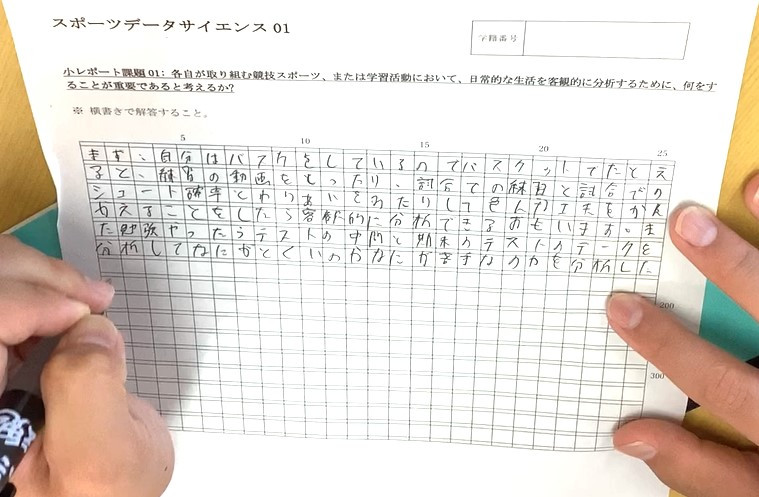 スポーツデータサイエンス 01
学籍番号
小レポート課題 01: 各自が取り組む競技スポーツ、または学習活動において、日常的な生活を客観的に分析するために、何をす
ることが重要であると考えるか?
※ 横書きで解答すること。
5 10 15 20 25
まず、自分はバスケをしているのでバスケットでたとえ
ると、練習の動画をとったり、試合での練習と試合での
シュート確率とわりあいをみたりして色んな工夫をかん
がえることをしたら客観的に分析できるおもいます。ま
た勉強やったらテストの中間と期末のテストのデータを
分析してなにがとくいのかなにが苦手なのかを分析した
200
300